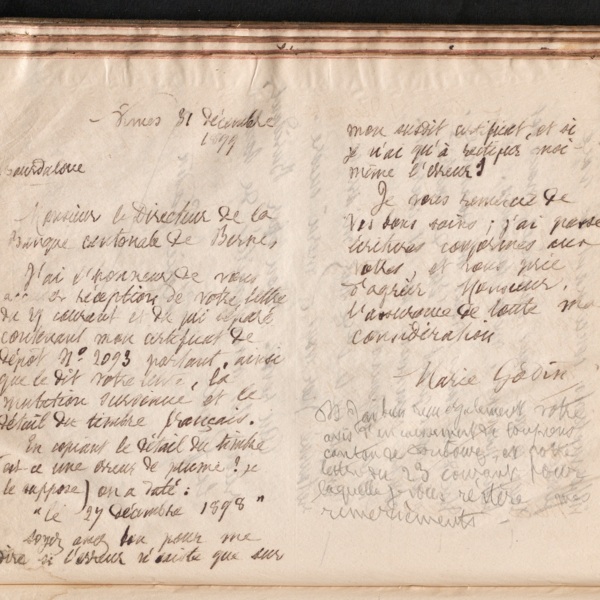 - Nimes 31 décembre
1899
Bourdaloue
Monsieur le Directeur de la
Banque cantonale de Berne,
J'ai l'honneur de vous
accuser réception de votre lettre
de 29 courant et de pli séparé
contenant mon certificat de
dépot No 2093 portant, ainsi
que le dit votre lettre, la
mutation survenue et le
détail du timbre français.
En copiant le détail du timbre
(est ce une erreur de plume? je
le suppose) on a daté:
"le 27 décembre 1898"
Soyez assez bon pour me
dire si l'erreur n'existe que sur
mon susdit certificat, et si
je n'ai qu'à rectifier moi-
même l'erreur?
Je vous remercie de
vos bons soins; j'ai passé
écritures conformes aux
votres et vous prie
d'agréer Monsieur,
l'assurance de toute ma
considération
Marie Godin
J'ai bien reçu également votre
avis d'encaissement de coupons
canton de Fribourg, et votre
lettre du 23 courant pour
laquelle je vous réitère mes
remerciements -